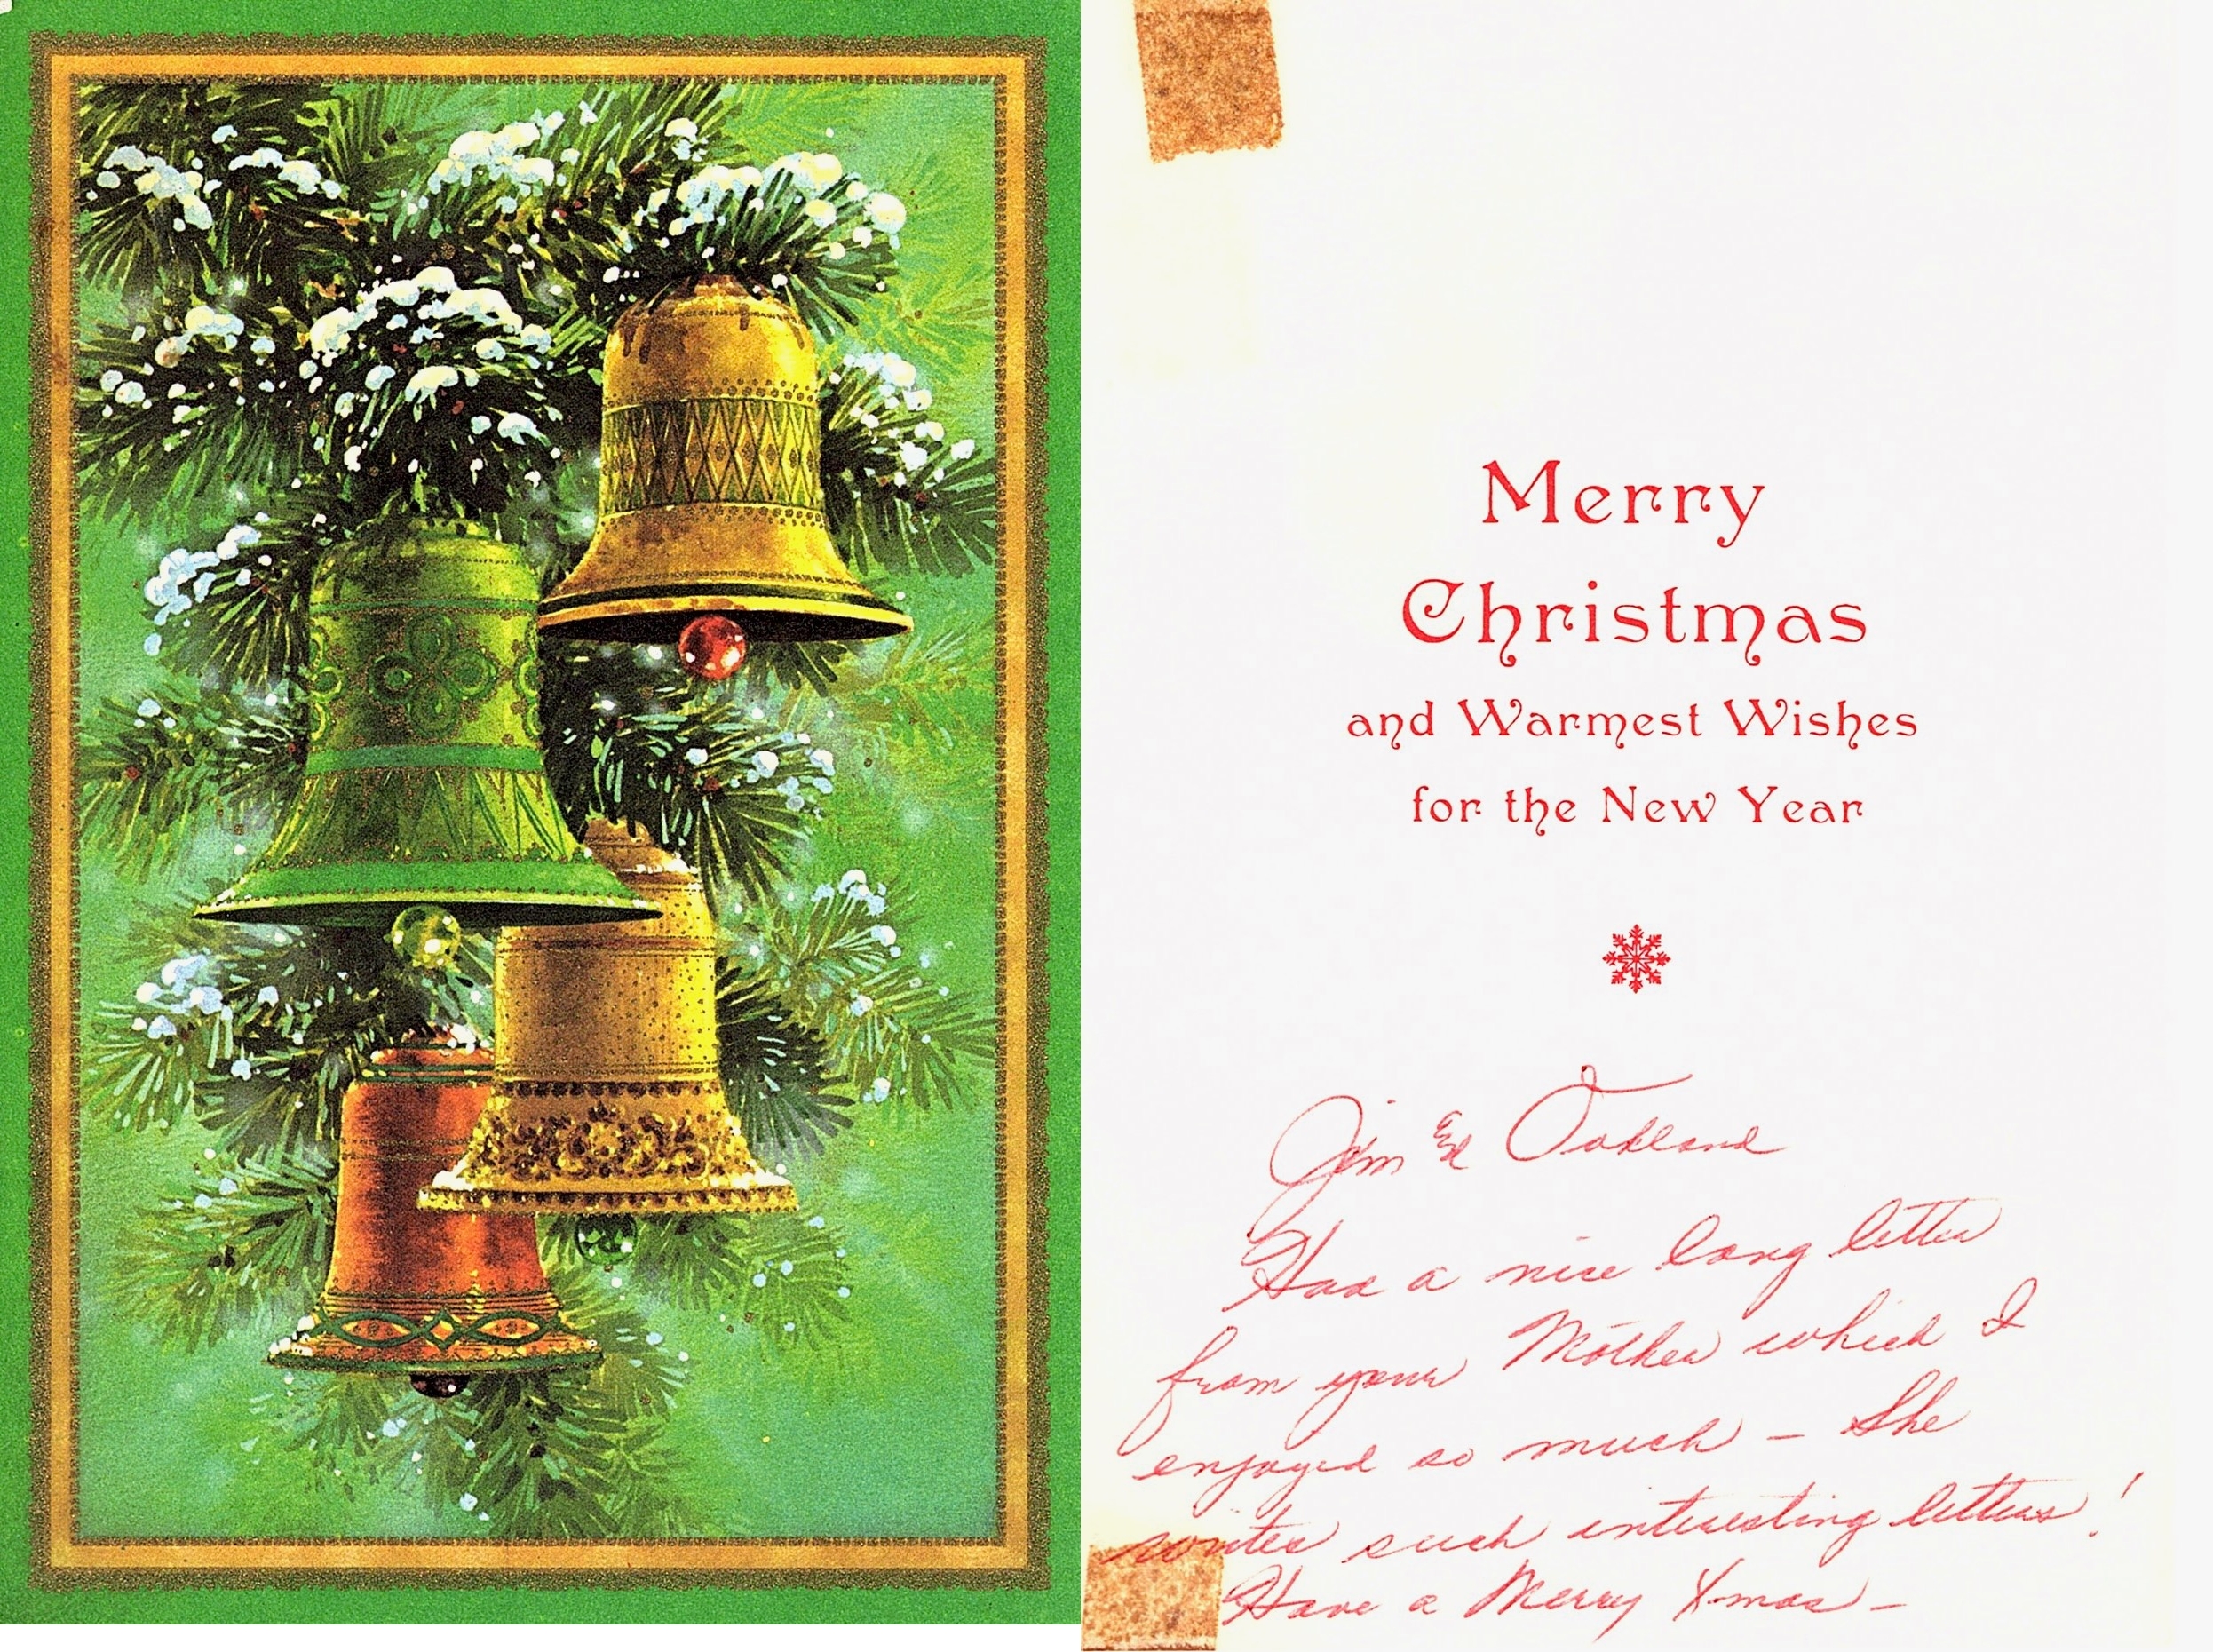 Merry
Christmas
and Warmest Wishes
for the New Year
Jim & Oakland
Had a nice long letter
from your Mother which I
enjoyed so much – She
writes such interesting letters!
Have a Merry Xmas –